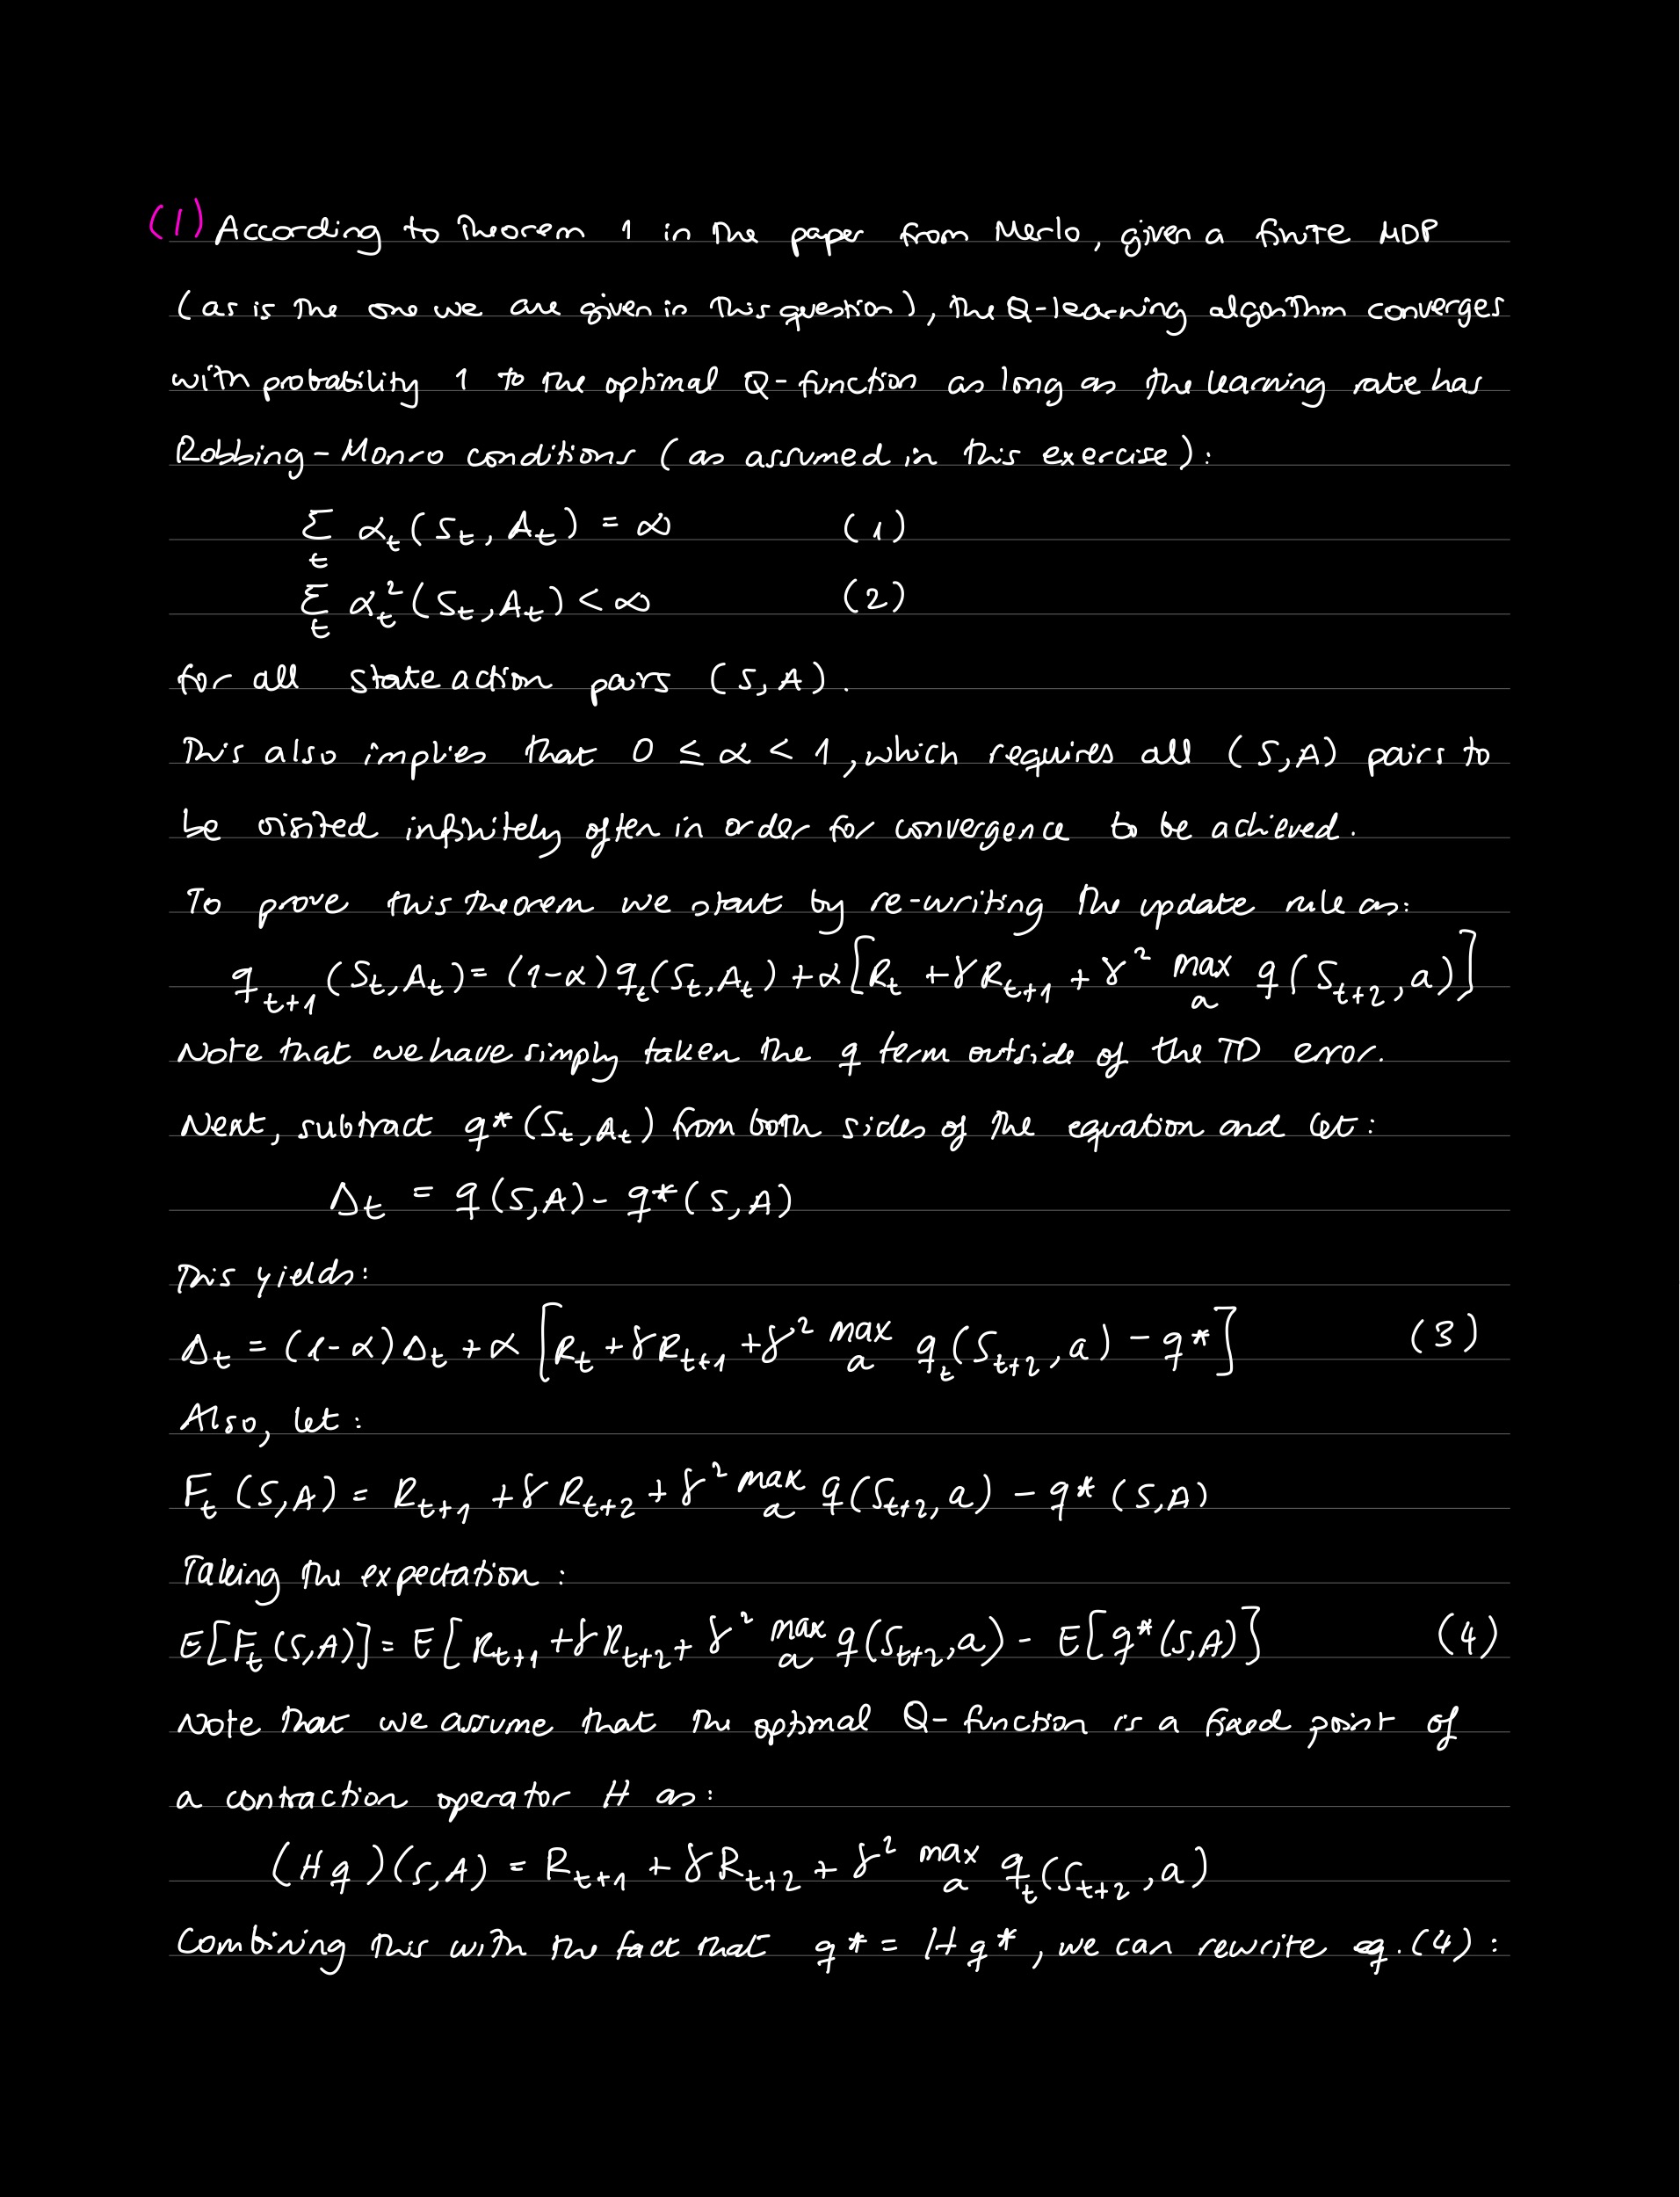 (1) According to Theorem 1 in the paper from Merlo, given a finite MDP
(as is the one we are given in this question), the Q-learning algorithm converges
with probability 1 to the optimal Q-function as long as the learning rate has
Robbing-Monro conditions (as assumed in this exercise):
Σ_t α_t(S_t, A_t) = ∞ (1)
Σ_t α_t²(S_t, A_t) < ∞ (2)
for all state action pairs (S, A).
This also implies that 0 ≤ α < 1, which requires all (S, A) pairs to
be visited infinitely often in order for convergence to be achieved.
To prove this theorem we start by re-writing the update rule as:
q_{t+1}(S_t, A_t) = (1-α) q_t(S_t, A_t) + α[R_t + γR_{t+1} + γ² max_a q(S_{t+2}, a)]
Note that we have simply taken the q term outside of the TD error.
Next, subtract q*(S_t, A_t) from both sides of the equation and let:
Δ_t = q(S, A) - q*(S, A)
This yields:
Δ_t = (1-α)Δ_t + α[R_t + γR_{t+1} + γ² max_a q_t(S_{t+2}, a) - q*] (3)
Also, let:
F_t(S, A) = R_{t+1} + γR_{t+2} + γ² max_a q(S_{t+2}, a) - q*(S, A)
Taking the expectation:
E[F_t(S, A)] = E[R_{t+1} + γR_{t+2} + γ² max_a q(S_{t+2}, a) - E[q*(S, A)] (4)
Note that we assume that the optimal Q-function is a fixed point of
a contraction operator H as:
(Hq)(S, A) = R_{t+1} + γR_{t+2} + γ² max_a q_t(S_{t+2}, a)
Combining this with the fact that q* = Hq*, we can rewrite eq. (4):